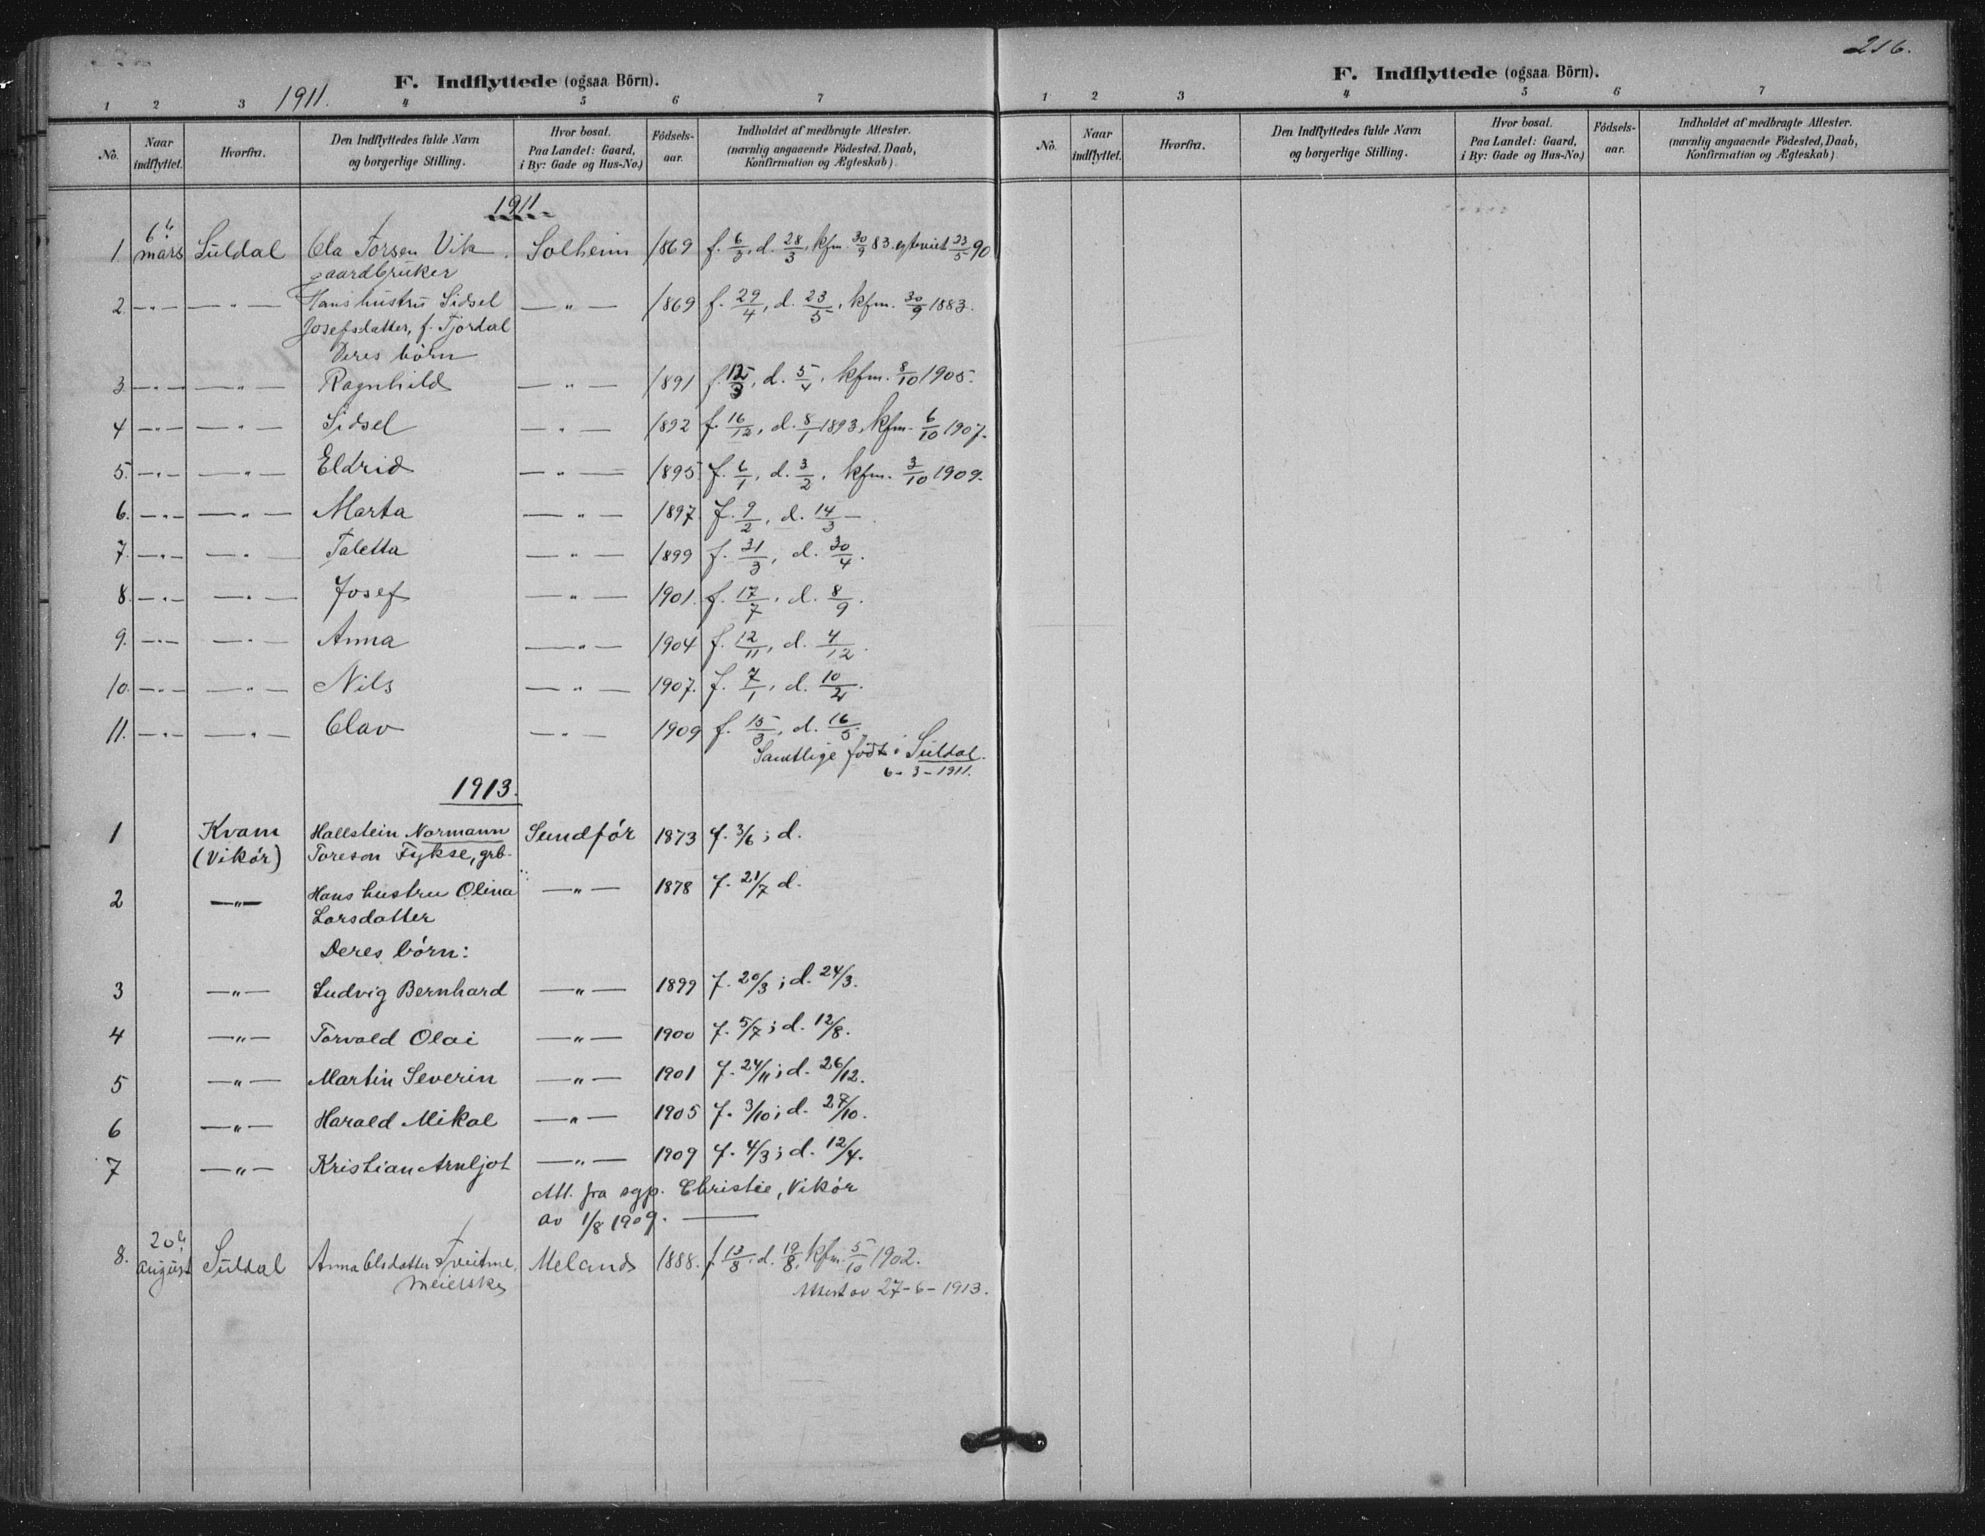 216.
F. Indflyttede (ogsaa Börn).
1911.
1 2 3 4 5 6 7
No. | Naar indflyttet. | Hvorfra. | Den Indflyttedes fulde Navn og borgerlige Stilling. | Hvor bosat. Paa Landet: Gaard, i By: Gade og Hus-No.) | Födsels-aar. | Indholdet af medbragte Attester. (navnlig angaaende Födested, Daab, Konfirmation og Ægteskab).
1911
6te
1. mars Suldal Ola Torsen Vik, Solheim 1869 f. 6/2, d. 28/3, kfm. 30/9 83. egteviet 23/5 90
gaardbruker
2. —"— —"— Hans hustru Sidsel —"— 1869 f. 29/4, d. 23/5, kfm. 30/9 1883.
Josefsdatter, f. Fjordal
Deres börn
3 —"— —"— Ragnhild —"— 1891 f. 12/3, d. 5/4, kfm. 8/10 1905.
4 —"— —"— Sidsel —"— 1892 f. 16/12, d. 8/1 1893, kfm. 6/10 1907.
5. —"— —"— Eldrid —"— 1895. f. 6/1, d. 3/2, kfm. 3/10 1909.
6. —"— —"— Marta —"— 1897. f. 9/2, d. 14/3
7. —"— —"— Taletta —"— 1899 f. 31/3, d. 30/4.
8. —"— —"— Josef —"— 1901. f. 17/7, d. 8/9.
9. —"— —"— Anna —"— 1904 f. 12/11, d. 4/12.
10. —"— —"— Nils —"— 1907. f. 7/1, d. 10/2.
11. —"— —"— Olav —"— 1909 f. 15/3, d. 16/5.
Samtlige födt i Suldal.
6-3-1911.
1913.
1 Kvam Hallstein Normann Sundför 1873 f. 3/6; d.
(Vikör) Toreson Fykse, grb.
2 —"— Hans hustru Olina —"— 1878 f. 21/7 d.
Larsdatter
Deres börn:
3 —"— Ludvig Bernhard —"— 1899 f. 20/3; d. 24/3.
4 —"— Torvald Olai —"— 1900 f. 5/7; d. 12/8.
5 —"— Martin Severin —"— 1901 f. 24/11; d. 26/12.
6 —"— Harald Mikal —"— 1905 f. 3/10; d. 27/10.
7 —"— Kristian Arnljot —"— 1909 f. 4/3; d. 12/4.
Att. fra sgp. Christie, Vikör
av 1/8 1909. —
20de
8. august Suldal Anna Olsdatter Meland 1888. f. 13/8, d. 19/8, kfm. 5/10 1902.
meierske
Attest av 27-6-1913.
F. Indflyttede (ogsaa Börn).
1 2 3 4 5 6 7
No. | Naar indflyttet. | Hvorfra. | Den Indflyttedes fulde Navn og borgerlige Stilling. | Hvor bosat. Paa Landet: Gaard, i By: Gade og Hus-No.) | Födsels-aar. | Indholdet af medbragte Attester. (navnlig angaaende Födested, Daab, Konfirmation og Ægteskab)